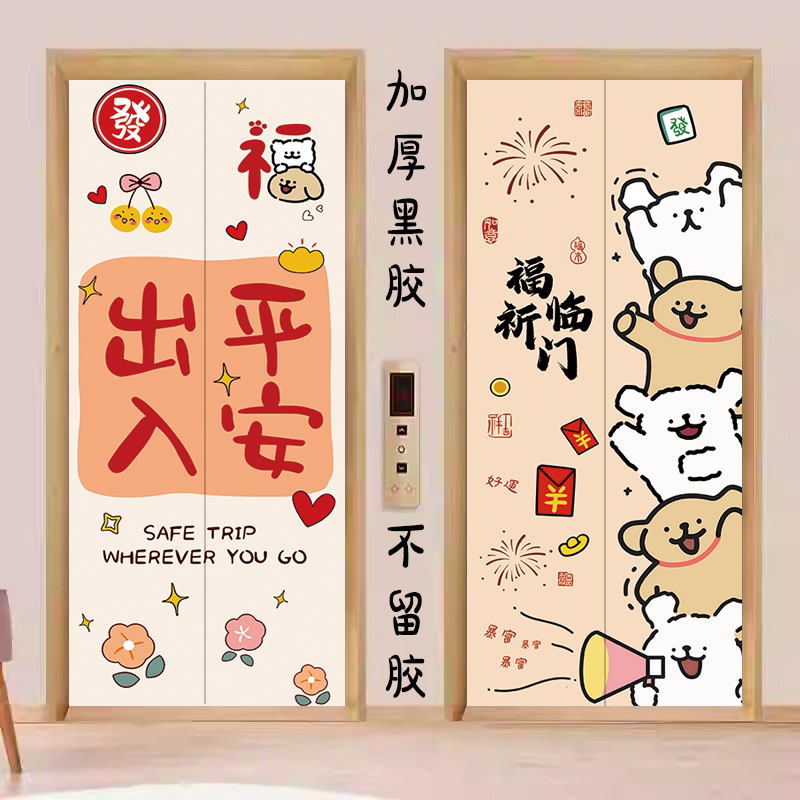 發
福
出入
平安
SAFE TRIP
WHEREVER YOU GO
加厚黑胶
不留胶
發
如意
祈福临门
吉祥
¥
¥
好運
暴富
暴富
暴富